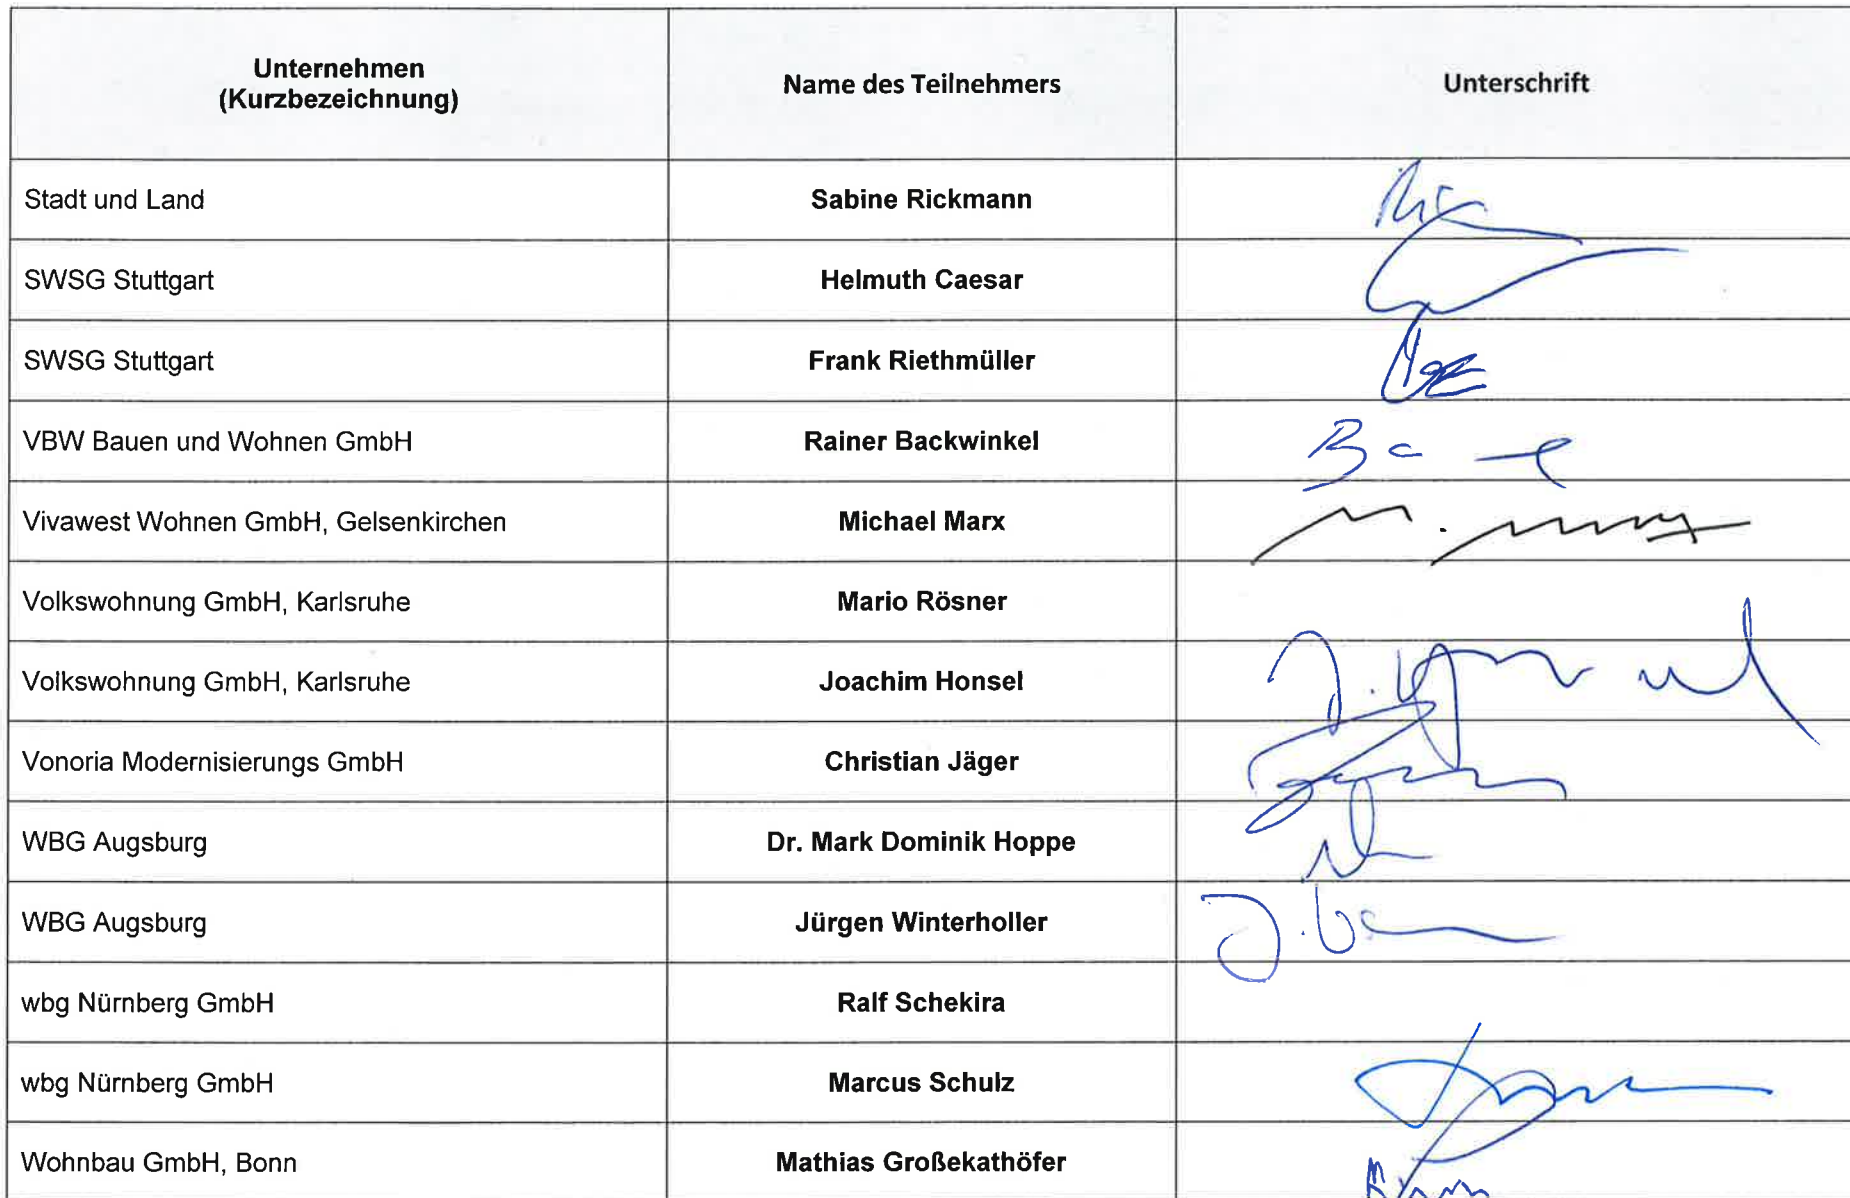 Unternehmen
(Kurzbezeichnung)
Name des Teilnehmers
Unterschrift
Stadt und Land
Sabine Rickmann
SWSG Stuttgart
Helmuth Caesar
SWSG Stuttgart
Frank Riethmüller
VBW Bauen und Wohnen GmbH
Rainer Backwinkel
Vivawest Wohnen GmbH, Gelsenkirchen
Michael Marx
Volkswohnung GmbH, Karlsruhe
Mario Rösner
Volkswohnung GmbH, Karlsruhe
Joachim Honsel
Vonoria Modernisierungs GmbH
Christian Jäger
WBG Augsburg
Dr. Mark Dominik Hoppe
WBG Augsburg
Jürgen Winterholler
wbg Nürnberg GmbH
Ralf Schekira
wbg Nürnberg GmbH
Marcus Schulz
Wohnbau GmbH, Bonn
Mathias Großekathöfer